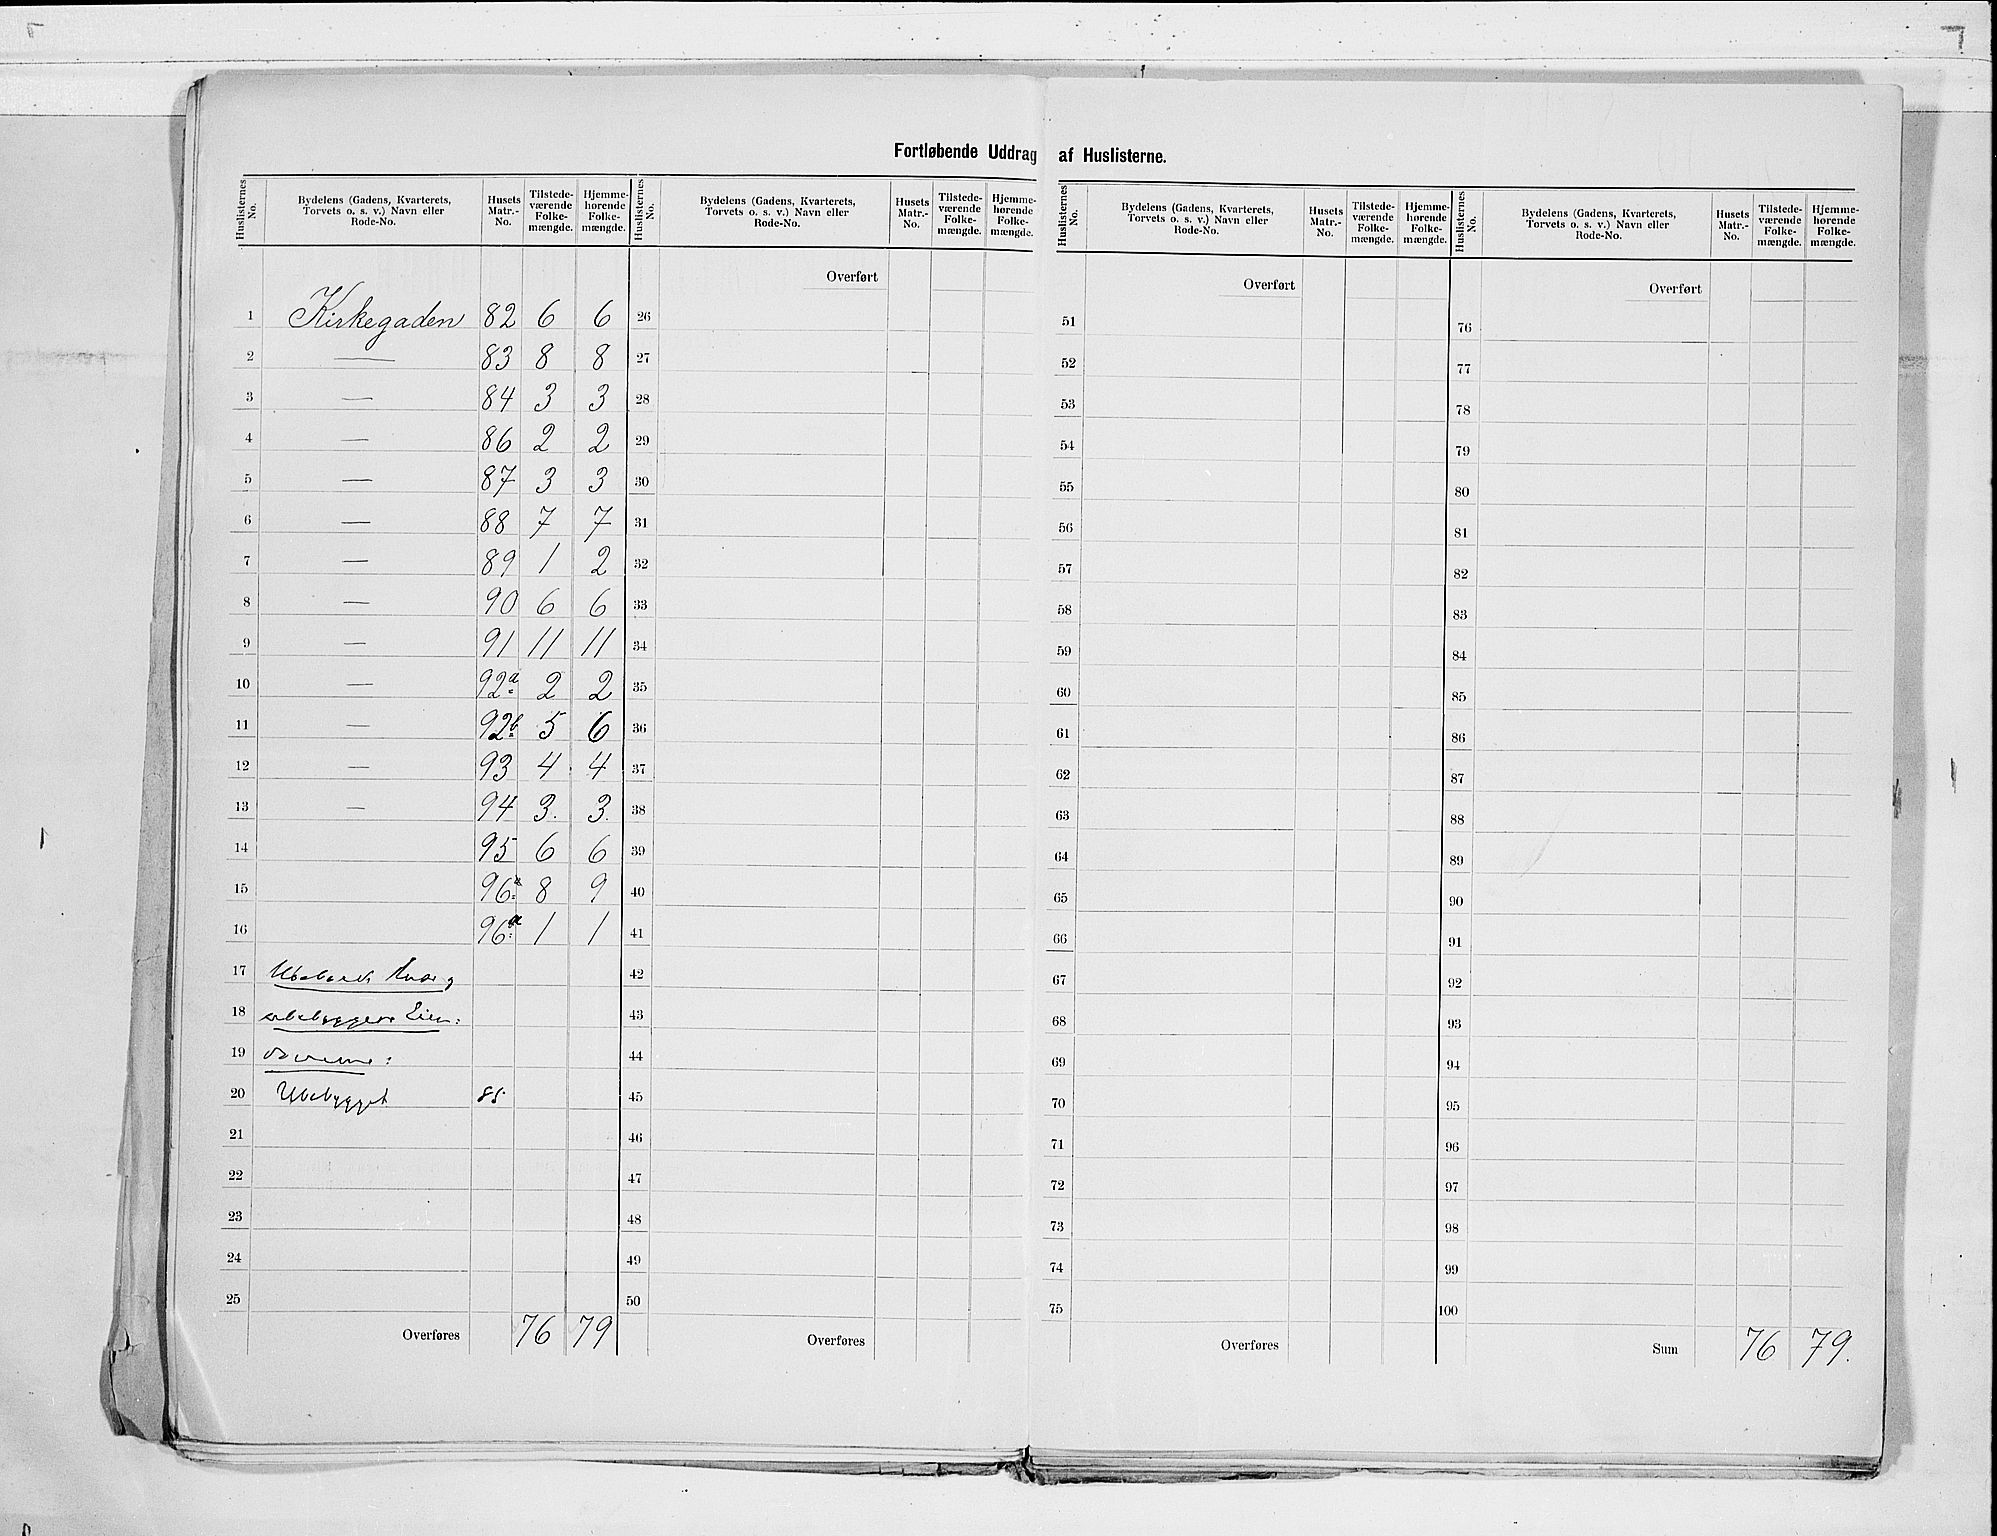 Fortløbende Uddrag af Huslisterne.
Huslisternes No. Bydelens (Gadens, Kvarterets, Torvets o. s. v.) Navn eller Rode-No. Husets Matr.-No. Tilstedeværende Folkemængde. Hjemmehørende Folkemængde.
Overført
1 Kirkegaden 82 6 6
2 — 83 8 8
3 — 84 3 3
4 — 86 2 2
5 — 87 3 3
6 — 88 7 7
7 — 89 1 2
8 — 90 6 6
9 — 91 11 11
10 — 92a 2 2
11 — 92b 5 6
12 — 93 4 4
13 — 94 3. 3.
14 95 6 6
15 96a 8 9
16 96a 1 1
17 Ubeboede
18 ubebyggede Eien:
19
20 Ubebygget 85
21
22
23
24
25
Overføres 76 79
Huslisternes No. Bydelens (Gadens, Kvarterets, Torvets o. s. v.) Navn eller Rode-No. Husets Matr.-No. Tilstedeværende Folkemængde. Hjemmehørende Folkemængde.
Overført
26
27
28
29
30
31
32
33
34
35
36
37
38
39
40
41
42
43
44
45
46
47
48
49
50
Overføres
Huslisternes No. Bydelens (Gadens, Kvarterets, Torvets o. s. v.) Navn eller Rode-No. Husets Matr.-No. Tilstedeværende Folkemængde. Hjemmehørende Folkemængde.
Overført
51
52
53
54
55
56
57
58
59
60
61
62
63
64
65
66
67
68
69
70
71
72
73
74
75
Overføres
Huslisternes No. Bydelens (Gadens, Kvarterets, Torvets o. s. v.) Navn eller Rode-No. Husets Matr.-No. Tilstedeværende Folkemængde. Hjemmehørende Folkemængde.
Overført
76
77
78
79
80
81
82
83
84
85
86
87
88
89
90
91
92
93
94
95
96
97
98
99
100
Sum 76 79.